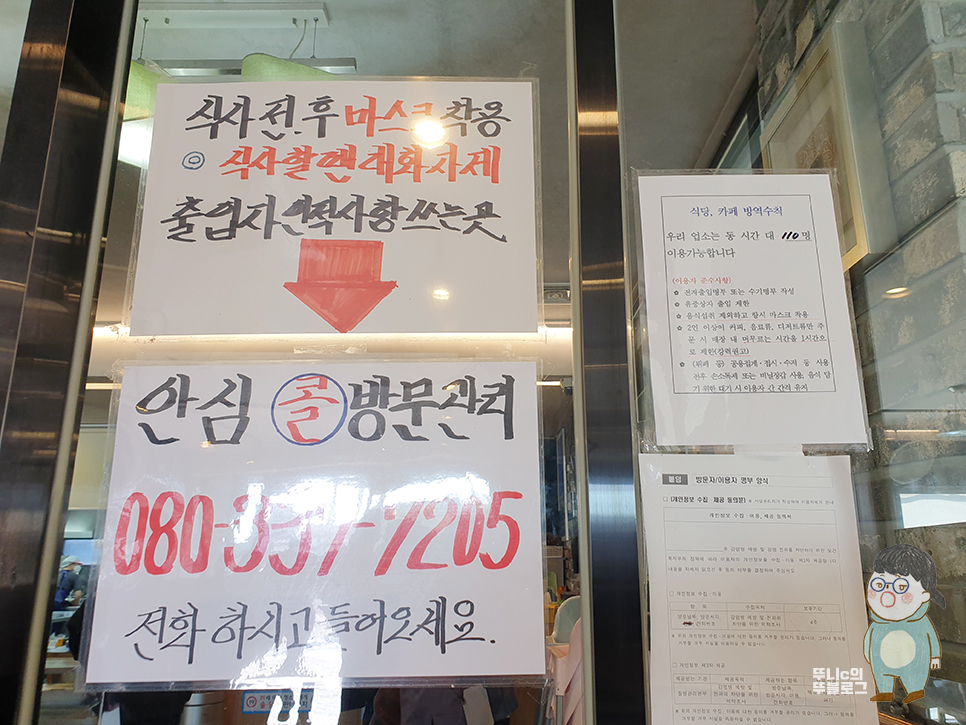 식사 전.후 마스크 착용
◎ 식사할땐 대화자제
출입자 인적사항 쓰는곳
안심 콜 방문관리
080-337-7205
전화 하시고 들어오세요.
식당, 카페 방역수칙
우리 업소는 동 시간 대 110명
이용가능합니다
(이용자 준수사항)
✿ 전자출입명부 또는 수기명부 작성
✿ 유증상자 출입 제한
✿ 음식섭취 제외하고 항시 마스크 착용
✿ 2인 이상이 커피, 음료류, 디저트류만 주
문 시 매장 내 머무르는 시간을 1시간으
로 제한(강력권고)
✿ (뷔페 등) 공용집게·접시·수저 등 사용
전후 손소독제 또는 비닐장갑 사용, 음식 담
기 위한 대기 시 이용자 간 간격 유지
붙임 방문자/이용자 명부 양식
□ (개인정보 수집·제공 동의문)
개인정보 수집·이용, 제공 동의서
□ 개인정보 수집·이용
항목 수집목적 보유기간
□ 개인정보 제3자 제공
뚜니c의
뚜블로그